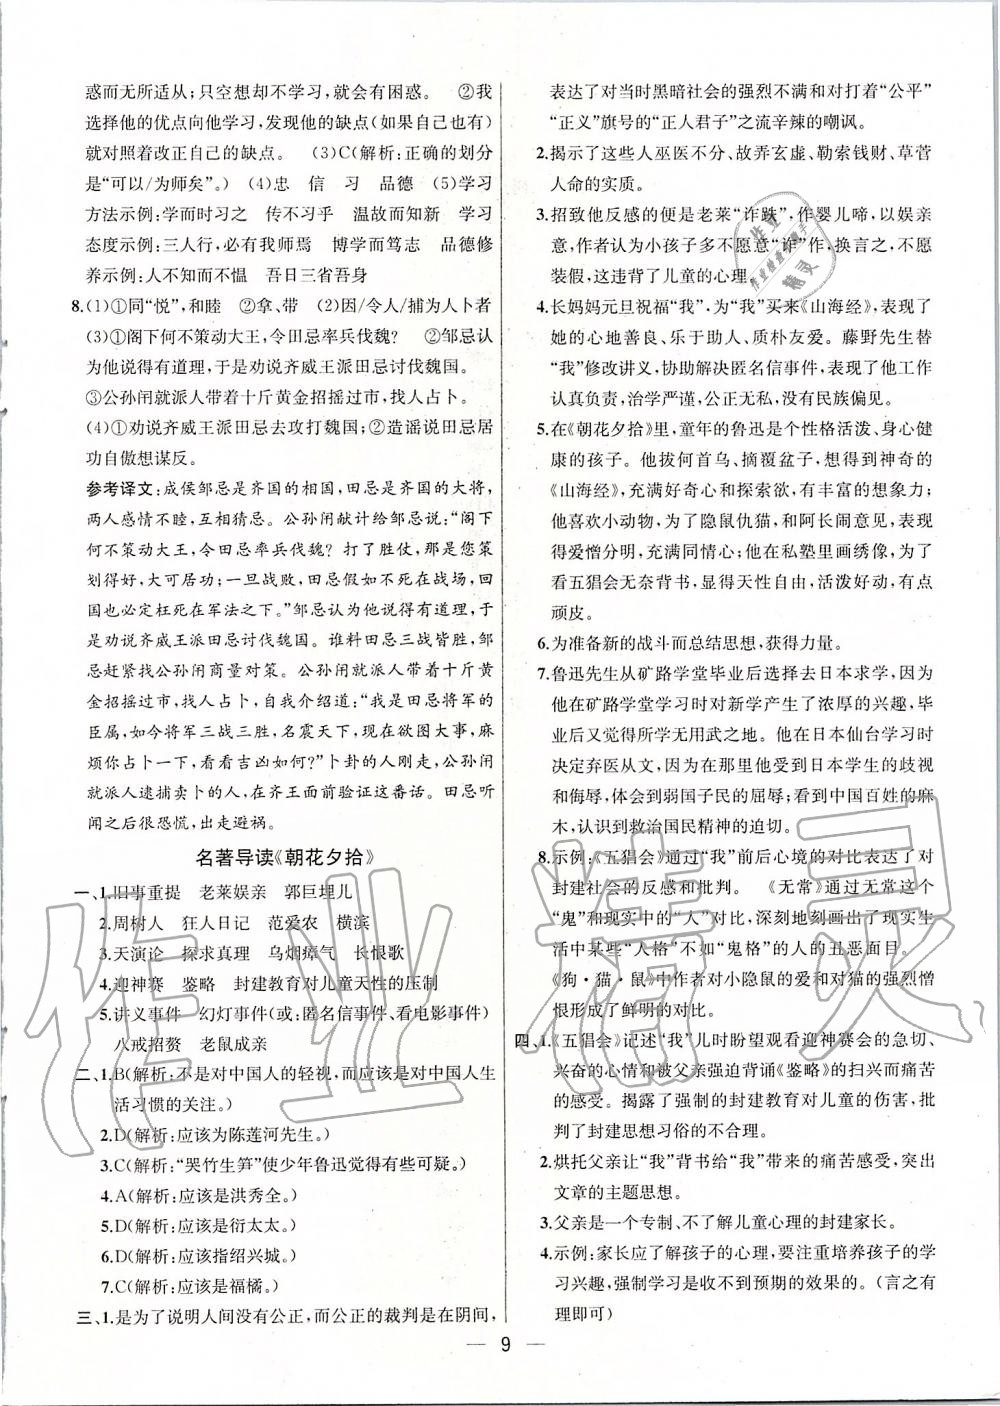 惑而无所适从;只空想却不学习,就会有困惑。 ②我
选择他的优点向他学习,发现他的缺点(如果自己也有)
就对照着改正自己的缺点。 (3)C(解析:正确的划分
是“可以/为师矣”。) (4)忠 信 习 品德 (5)学习
方法示例:学而时习之 传不习乎 温故而知新 学习
态度示例:三人行,必有我师焉 博学而笃志 品德修
养示例:人不知而不愠 吾日三省吾身
8.(1)①同“悦”,和睦 ②拿、带 (2)因/令人/捕为人卜者
(3)①阁下何不策动大王,令田忌率兵伐魏? ②邹忌认
为他说得有道理,于是劝说齐威王派田忌讨伐魏国。
③公孙闬就派人带着十斤黄金招摇过市,找人占卜。
(4)①劝说齐威王派田忌去攻打魏国;②造谣说田忌居
功自傲想谋反。
参考译文:成侯邹忌是齐国的相国,田忌是齐国的大将,
两人感情不睦,互相猜忌。公孙闬献计给邹忌说:“阁下
何不策动大王,令田忌率兵伐魏? 打了胜仗,那是您策
划得好,大可居功;一旦战败,田忌假如不死在战场,回
国也必定枉死在军法之下。”邹忌认为他说得有道理,于
是劝说齐威王派田忌讨伐魏国。谁料田忌三战皆胜,邹
忌赶紧找公孙闬商量对策。公孙闬就派人带着十斤黄
金招摇过市,找人占卜,自我介绍道:“我是田忌将军的
臣属,如今将军三战三胜,名震天下,现在欲图大事,麻
烦你占卜一下,看看吉凶如何?”卜卦的人刚走,公孙闬
就派人逮捕卖卜的人,在齐王面前验证这番话。田忌听
闻之后很恐慌,出走避祸。
名著导读《朝花夕拾》
一、1.旧事重提 老莱娱亲 郭巨埋儿
2.周树人 狂人日记 范爱农 横滨
3.天演论 探求真理 乌烟瘴气 长恨歌
4.迎神赛 鉴略 封建教育对儿童天性的压制
5.讲义事件 幻灯事件(或:匿名信事件、看电影事件)
八戒招赘 老鼠成亲
二、1.B(解析:不是对中国人的轻视,而应该是对中国人生
活习惯的关注。)
2.D(解析:应该为陈莲河先生。)
3.C(解析:“哭竹生笋”使少年鲁迅觉得有些可疑。)
4.A(解析:应该是洪秀全。)
5.D(解析:应该是衍太太。)
6.D(解析:应该指绍兴城。)
7.C(解析:应该是福橘。)
三、1.是为了说明人间没有公正,而公正的裁判是在阴间,
表达了对当时黑暗社会的强烈不满和对打着“公平”
“正义”旗号的“正人君子”之流辛辣的嘲讽。
2.揭示了这些人巫医不分、故弄玄虚、勒索钱财、草菅
人命的实质。
3.招致他反感的便是老莱“诈跌”,作婴儿啼,以娱亲
意,作者认为小孩子多不愿意“诈”作,换言之,不愿
装假,这违背了儿童的心理。
4.长妈妈元旦祝福“我”,为“我”买来《山海经》,表现了
她的心地善良、乐于助人、质朴友爱。藤野先生替
“我”修改讲义,协助解决匿名信事件,表现了他工作
认真负责,治学严谨,公正无私,没有民族偏见。
5.在《朝花夕拾》里,童年的鲁迅是个性格活泼、身心健
康的孩子。他拔何首乌、摘覆盆子,想得到神奇的
《山海经》,充满好奇心和探索欲,有丰富的想象力;
他喜欢小动物,为了隐鼠仇猫,和阿长闹意见,表现
得爱憎分明,充满同情心;他在私塾里画绣像,为了
看五猖会无奈背书,显得天性自由,活泼好动,有点
顽皮。
6.为准备新的战斗而总结思想,获得力量。
7.鲁迅先生从矿路学堂毕业后选择去日本求学,因为
他在矿路学堂学习时对新学产生了浓厚的兴趣,毕
业后又觉得所学无用武之地。他在日本仙台学习时
决定弃医从文,原因是在那里他受到日本学生的歧视
和侮辱,体会到弱国子民的屈辱;看到中国百姓的麻
木,认识到救治国民精神的迫切。
8.示例:《五猖会》通过“我”前后心境的对比表达了对
封建社会的反感和批判。 《无常》通过无常这个
“鬼”和现实中的“人”对比,深刻地刻画出了现实生
活中某些“人格”不如“鬼格”的人的丑恶面目。
《狗·猫·鼠》中作者对小隐鼠的爱和对猫的强烈憎
恨形成了鲜明的对比。
四、1.《五猖会》记述“我”儿时盼望观看迎神赛会的急切、
兴奋的心情和被父亲强迫背诵《鉴略》的扫兴而痛苦
的感受。揭露了强制的封建教育对儿童的伤害,批
判了封建思想习俗的不合理。
2.烘托父亲让“我”背书给“我”带来的痛苦感受,突出
文章的主题思想。
3.父亲是一个专制、不了解儿童心理的封建家长。
4.示例:家长应了解孩子的心理,要注重培养孩子的学
习兴趣,强制学习是收不到预期的效果的。(言之有
理即可)
— 9 —
作业精灵